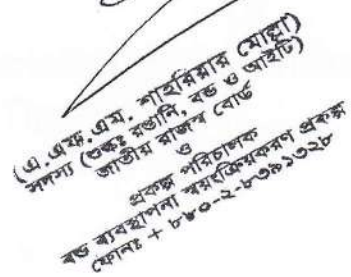 (এ.এফ.এম. শাহরিয়ার মোল্লা)
সদস্য (শুল্কঃ রপ্তানি, বন্ড ও আইটি)
জাতীয় রাজস্ব বোর্ড
ও
প্রকল্প পরিচালক
বন্ড ব্যবস্থাপনা স্বয়ংক্রিয়করণ প্রকল্প
ফোনঃ + ৮৮০-২-৮৩৯১৩২৮